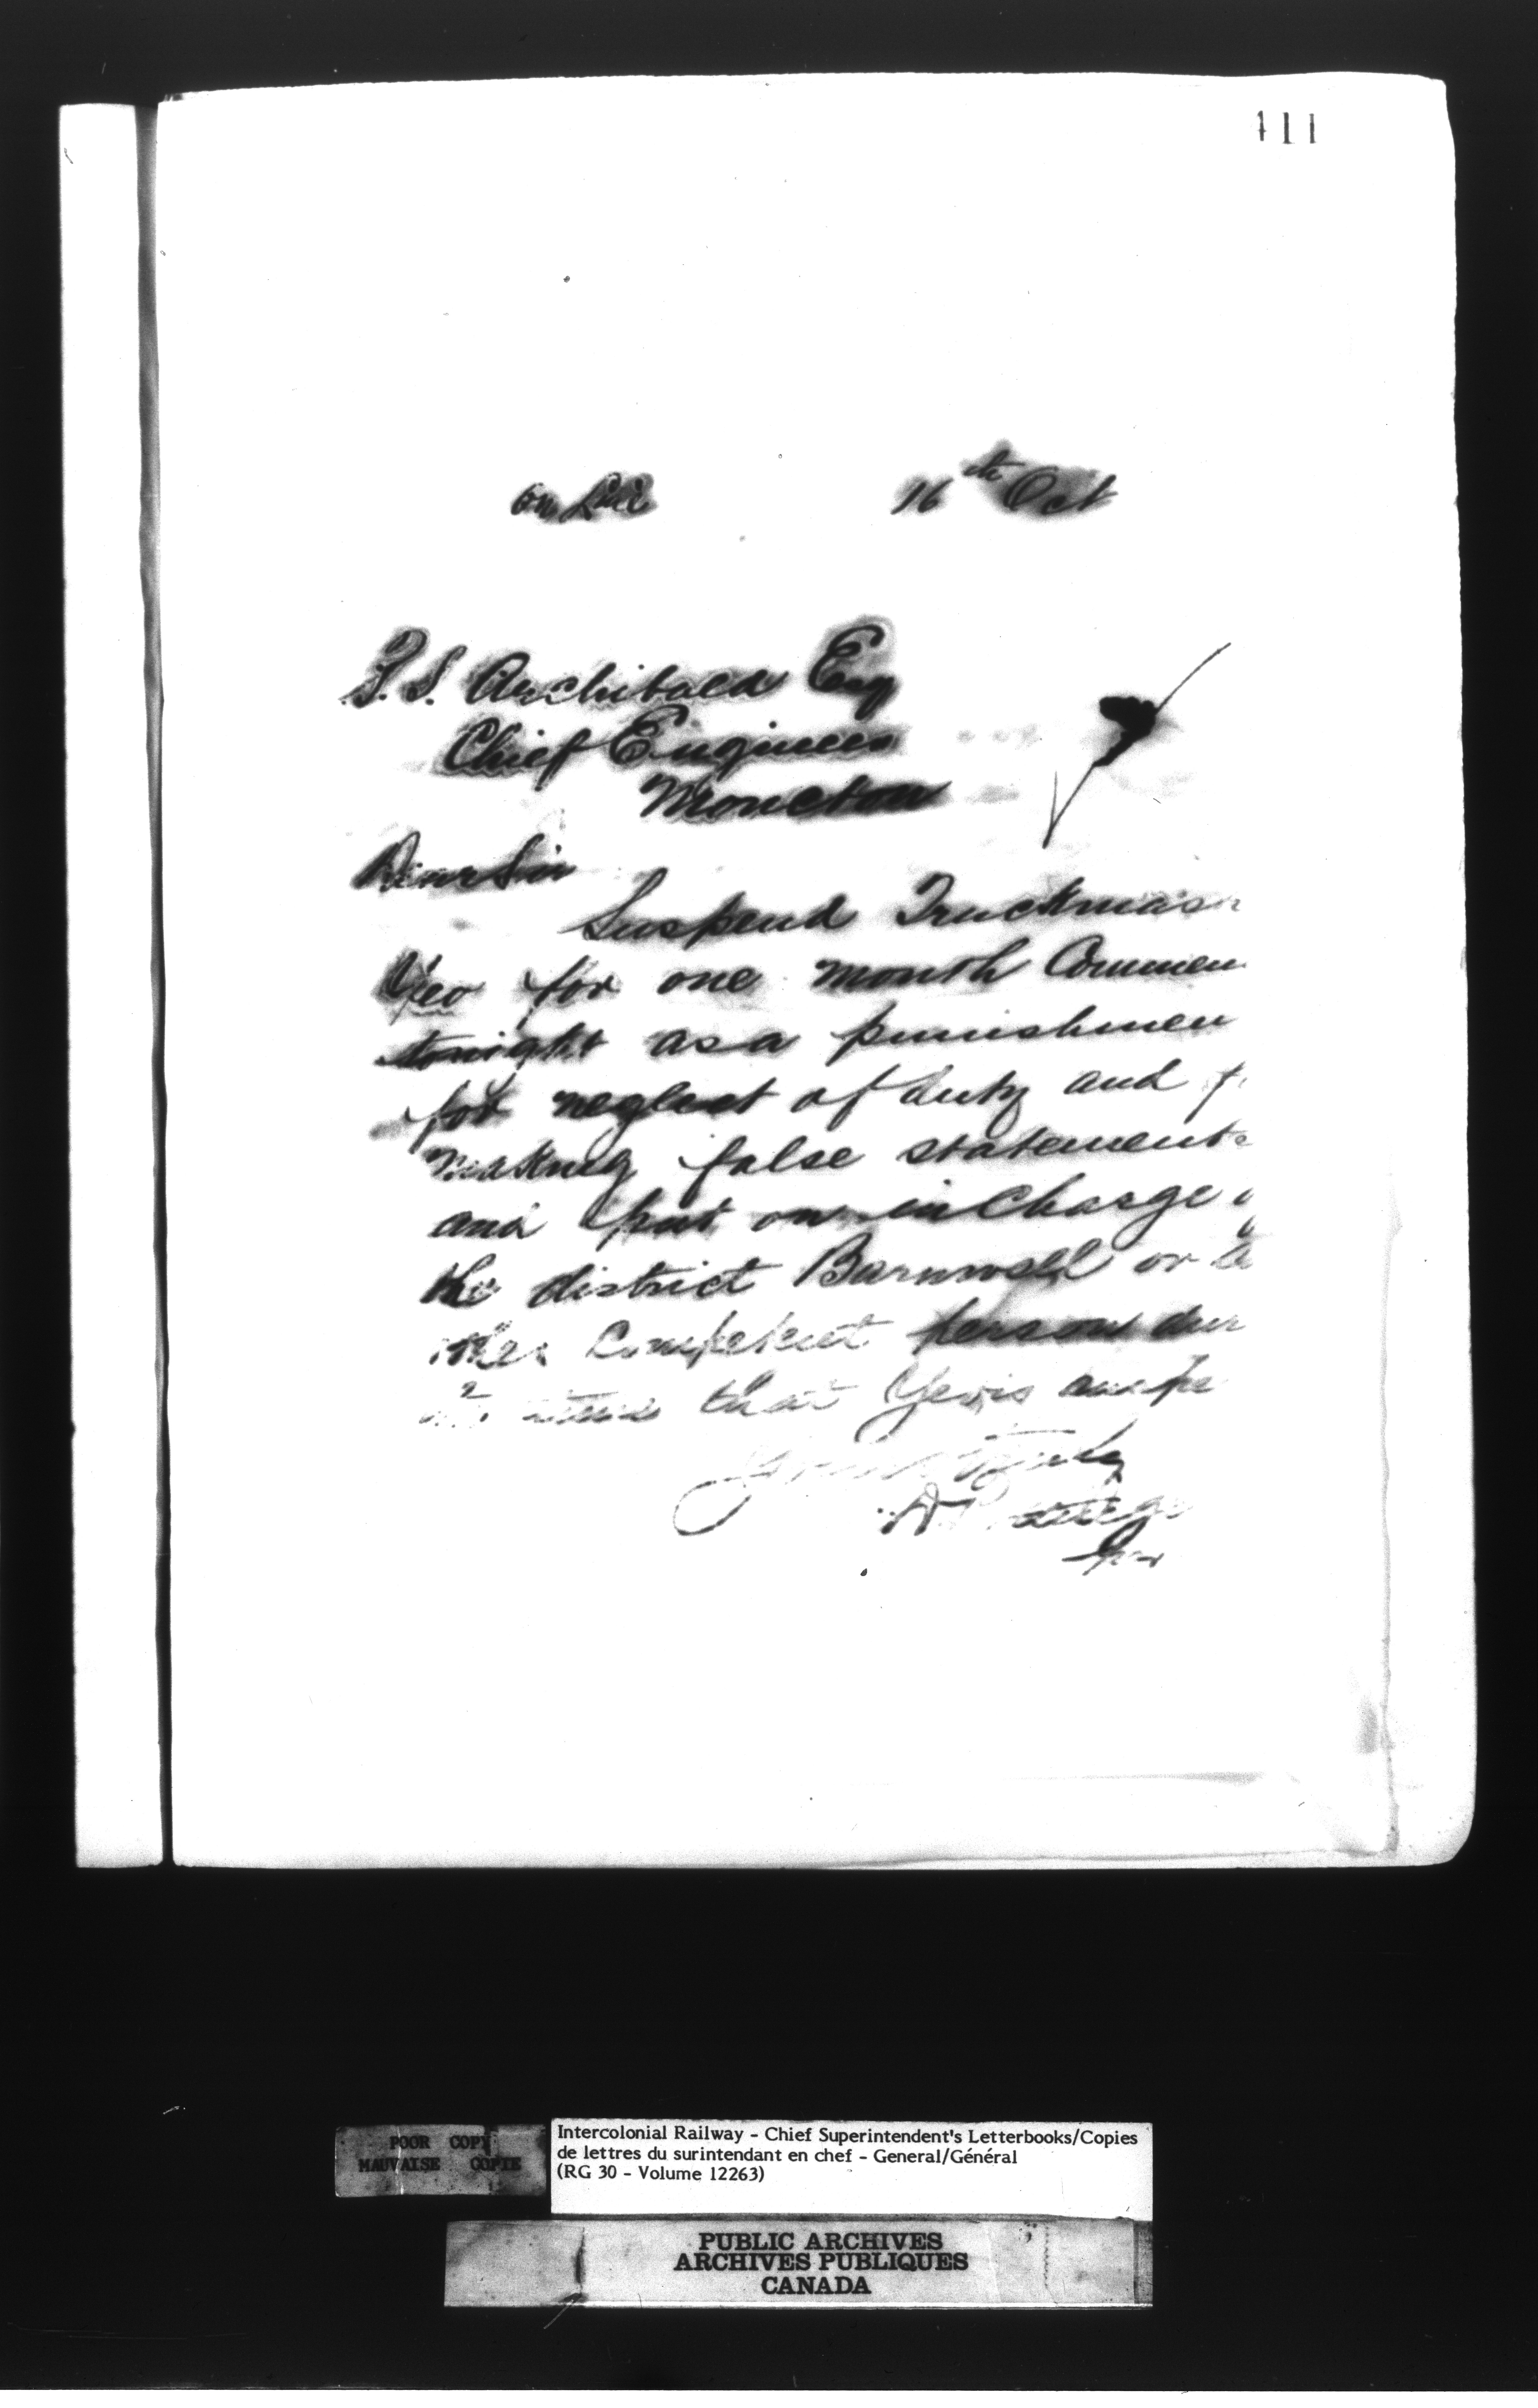 411
on Line 16th Oct
P. S. Archibald Esq
Chief Engineer
Moncton
Dear Sir
Suspend Trackmas
Yeo for one month Commen
tonight as a punishmen
for neglect of duty and f
making false statements
and put on in charge o
the district Barnwell or
other Competent person dur
time that Yeo is suspe
Yours Truly
D
POOR COPY
MAUVAISE COPIE
Intercolonial Railway - Chief Superintendent's Letterbooks/Copies
de lettres du surintendant en chef - General/Général
(RG 30 - Volume 12263)
PUBLIC ARCHIVES
ARCHIVES PUBLIQUES
CANADA